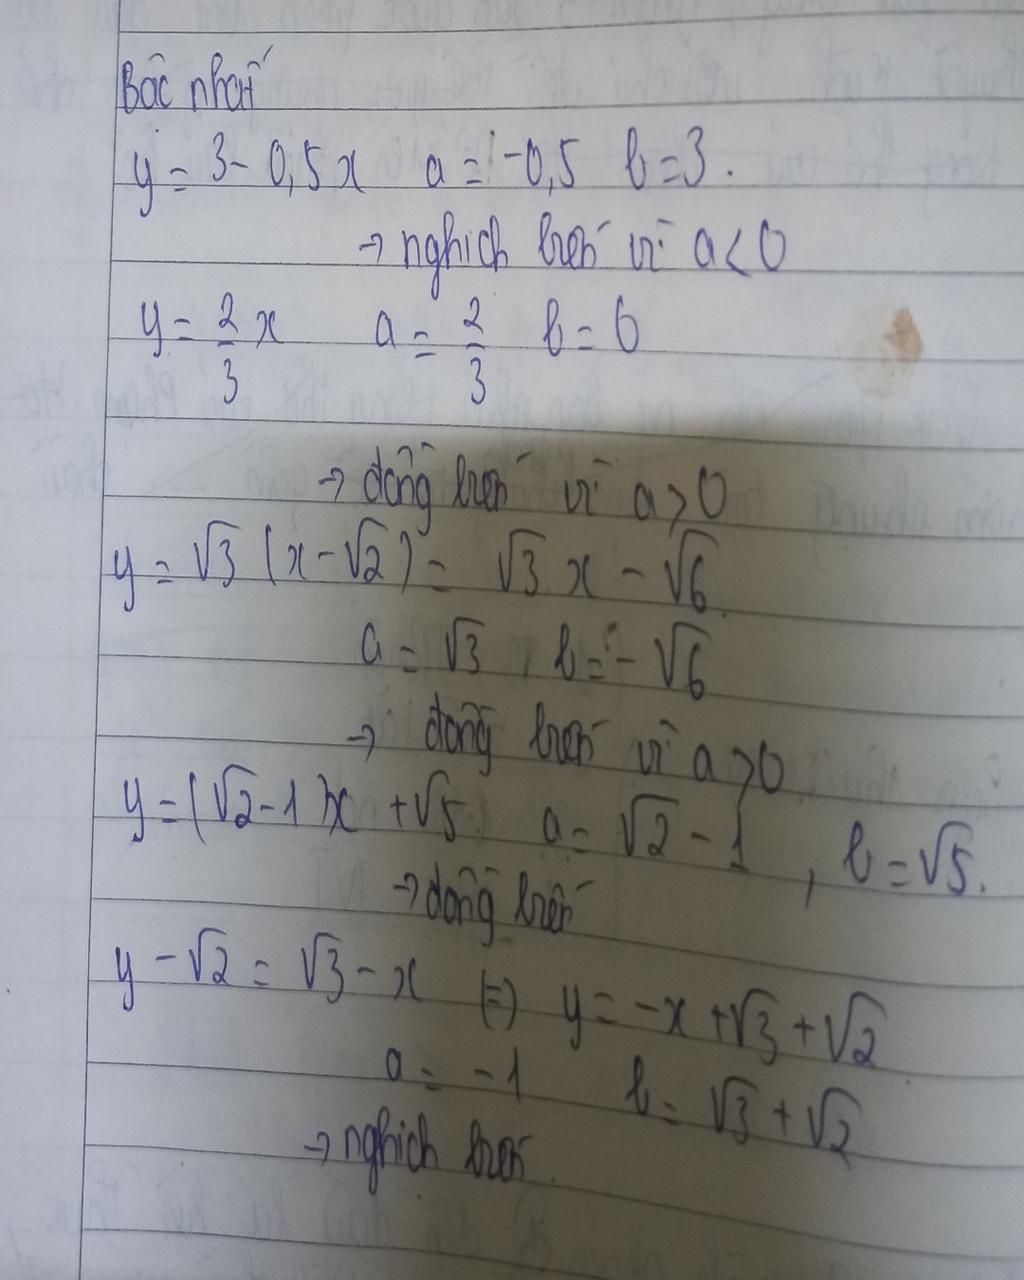 Bậc nhất
y = 3 - 0,5x a = -0,5 b = 3.
→ nghịch biến vì a < 0
y = 2/3 x a = 2/3 b = 0
→ đồng biến vì a > 0
y = √3 (x - √2) = √3 x - √6
a = √3, b = -√6
→ đồng biến vì a > 0
y = (√2 - 1)x + √5 a = √2 - 1, b = √5.
→ đồng biến
y - √2 = √3 - x (=) y = -x + √3 + √2
a = -1 b = √3 + √2
→ nghịch biến